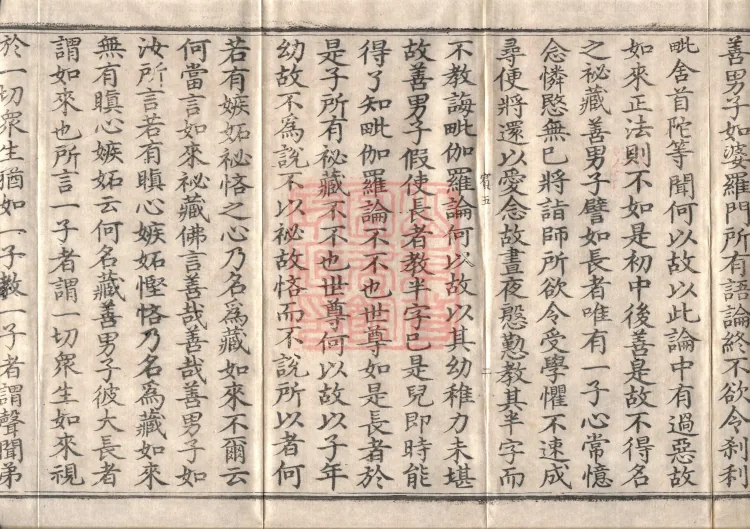 善男子如婆羅門所有語論終不欲令刹利
毗舍首陀等聞何以故以此論中有過惡故
如來正法則不如是初中後善是故不得名
之祕藏善男子譬如長者唯有一子心常憶
念憐愍無已將詣師所欲令受學懼不速成
尋便將還以愛念故晝夜慇懃教其半字而
賓五
二
不教誨毗伽羅論何以故以其幼稚力未堪
故善男子假使長者教半字已是兒即時能
得了知毗伽羅論不不也世尊如是長者於
是子所有祕藏不不也世尊何以故以子年
幼故不為說不以祕故悋而不說所以者何
若有嫉妬祕悋之心乃名為藏如來不爾云
何當言如來祕藏佛言善哉善哉善男子如
汝所言若有瞋心嫉妬慳悋乃名為藏如來
無有瞋心嫉妬云何名藏善男子彼大長者
謂如來也所言一子者謂一切眾生如來視
於一切眾生猶如一子教一子者謂聲聞弟